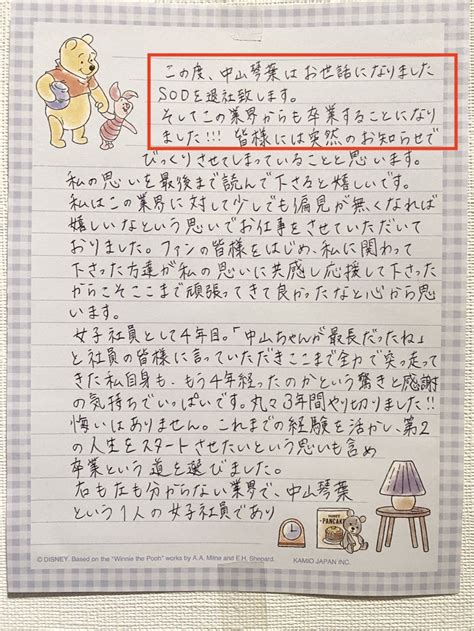 この度、中山琴葉はお世話になりました
SODを退社致します。
そしてこの業界からも卒業することになり
ました!!! 皆様には突然のお知らせで
びっくりさせてしまっていることと思います。
私の思いを最後まで読んで下さると嬉しいです。
私はこの業界に対して少しでも偏見が無くなれば
嬉しいなという思いでお仕事をさせていただいて
おりました。ファンの皆様をはじめ、私に関わって
下さった方達が私の思いに共感し応援して下さった
からこそここまで頑張ってきて良かったなと心から思
います。
女子社員として4年目。「中山ちゃんが最長だったね」
と社員の皆様に言っていただきここまで全力で突っ走って
きた私自身も、もう4年経ったのかという驚きと感謝
の気持ちでいっぱいです。丸々3年間やり切りました!!
悔いはありません。これまでの経験を活かし、第2
の人生をスタートさせたいという思いも含め
卒業という道を選びました。
右も左も分からない業界で、中山琴葉
という1人の女子社員であり
HUNNY
PANCAKE
© DISNEY. Based on the "Winnie the Pooh" works by A.A. Milne and E.H. Shepard.
KAMIO JAPAN INC.